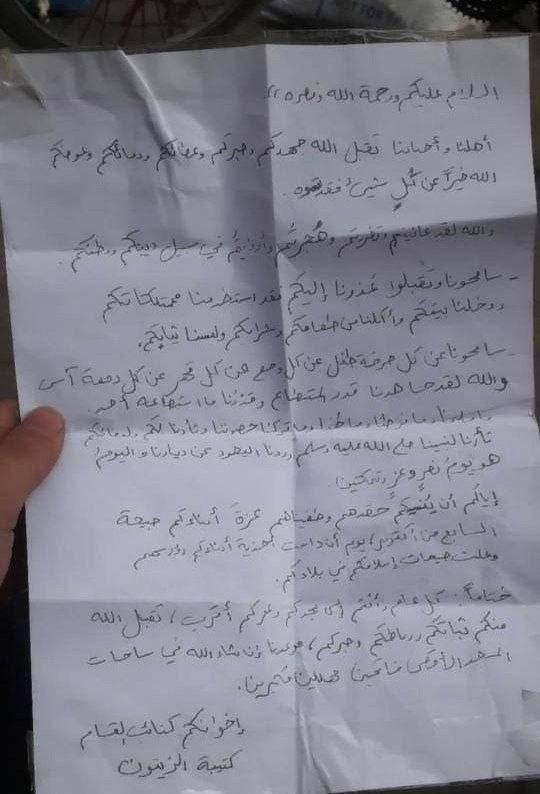 السلام عليكم ورحمة الله ونصره،،
أهلنا وأحبابنا تقبل الله جهدكم وصبركم وعطائكم ودمائكم وعوضكم
الله خيراً عن كل شيئ فقدتموه.
والله لقد عانيتم وتغربتم وهُجرتم وأوذيتم في سبيل دينكم ووطنكم.
- سامحونا وتقبلوا عذرنا إليكم فقد استخدمنا ممتلكاتكم
ودخلنا بيتكم وأكلنا من طعامكم وشرابكم ولبسنا ثيابكم.
- سامحونا عن كل صرخة طفل عن كل وجع عن كل قهر عن كل دمعة أس
والله لقد جاهدنا قدر المستطاع وقدمنا ما استطاعه أحد.
وما تركنا حصوننا وثأرنا لكم ولدمائكم
ثأرنا لنبينا صلى الله عليه وسلم رددنا اليهود عن ديارنا واليوم
هو يوم نصر وعز وتمكين
إياكم أن يُنسيكم حقدهم وطغيانهم عزة أبنائكم صبيحة
السابع من أكتوبر، يوم أن داست أحذية أبنائكم رؤوسهم
وعلت صيحات إسلامكم في بلادكم.
ختاماً: كل عام وأنتم إلى مجدكم وعزكم أقرب، تقبل الله
منكم ثباتكم ورباطكم وصبركم، موعدنا إن شاء الله في ساحات
المسجد الأقصى فاتحين مهللين مكبرين.
إخوانكم كتائب القسام
كتيبة الزيتون